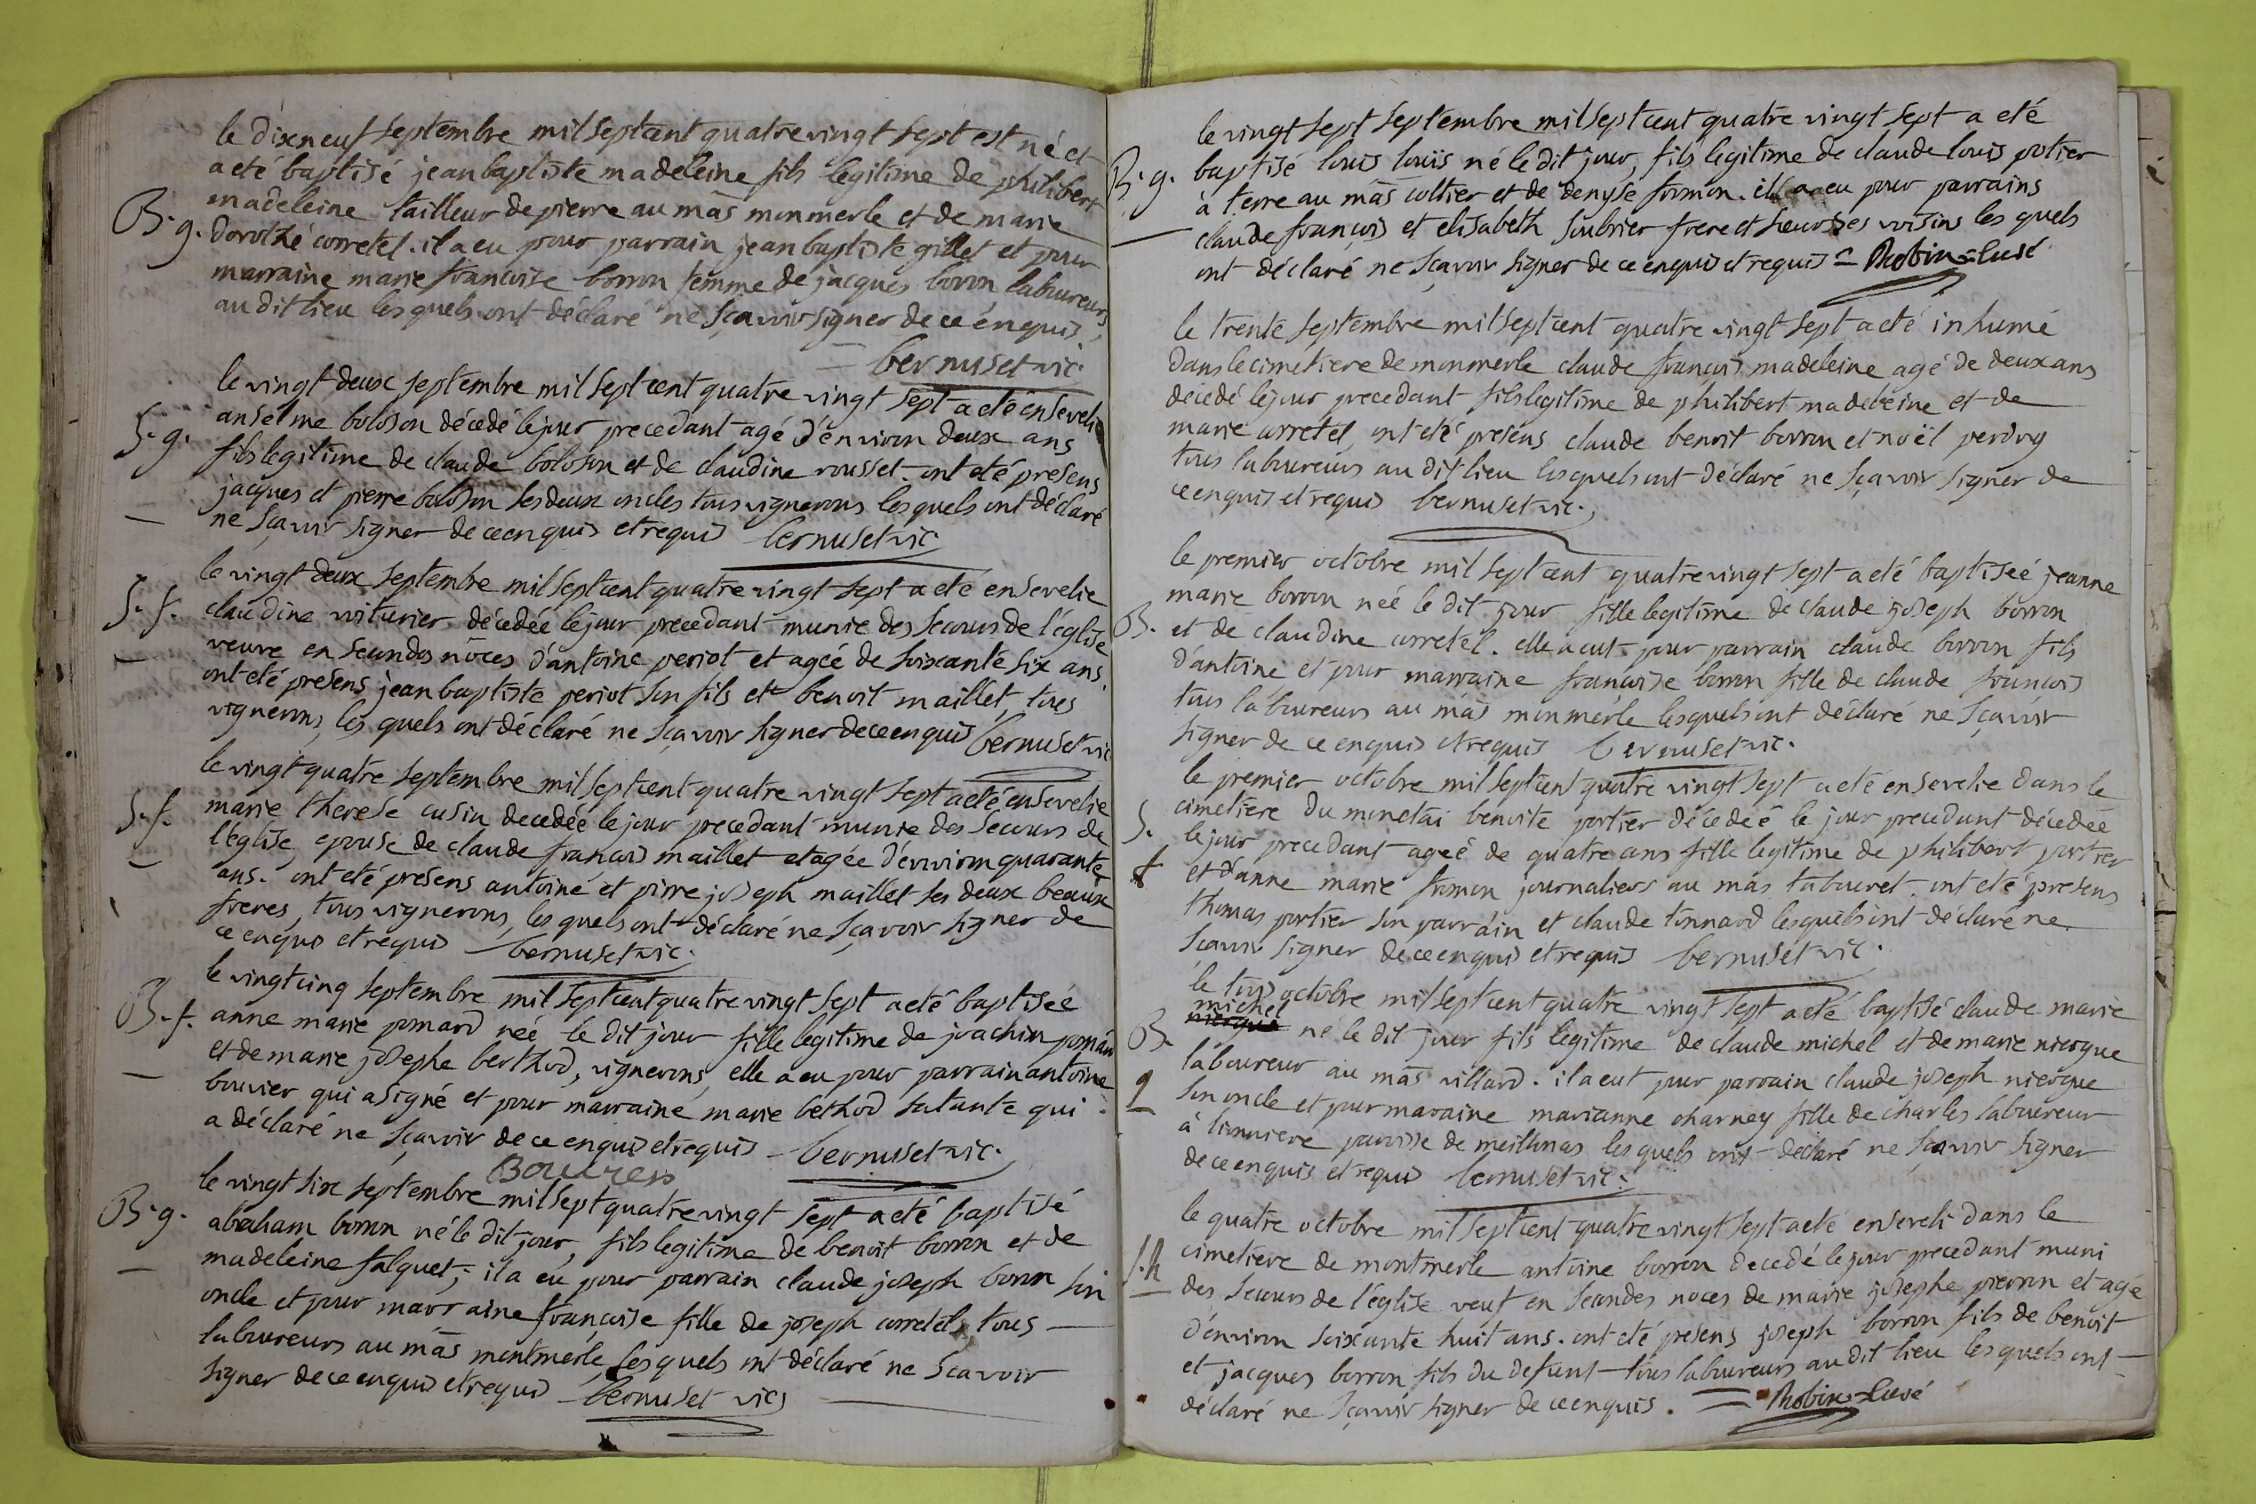 le dixneuf septembre mil sept cent quatre vingt sept est né et
a eté baptisé jean baptiste madeleine fils legitime de philibert
madeleine tailleur de pierre au màs monmerle et de marie
B. g. dorothé corretel. il a eu pour parrain jean baptiste gillet et pour
marraine marie francoise borron femme de jacques boron laboureurs
au dit lieu les quels ont déclaré ne sçavoir signer de ce enquis
bernuset vic.
le vingt deux septembre mil sept cent quatre vingt sept a eté enseveli
S. g. anselme boloson décedé le jour precedant agé d'environ deux ans
fils legitime de claude boloson et de claudine rousset. ont eté présens
jacques et pierre boloson ses deux oncles tous vignerons les quels ont déclaré
ne sçavoir signer de ce enquis et requis bernuset vic.
le vingt deux septembre mil sept cent quatre vingt sept a eté ensevelie
S. f. claudine voiturier décedée le jour precedant munie des secours de l'église
veuve en secondes nôces d'antoine periot et ageé de soixante six ans
ont eté présens jean baptiste periot son fils et benoit maillet, tous
vignerons, les quels ont déclaré ne sçavoir signer de ce enquis bernuset vic
le vingt quatre septembre mil sept cent quatre vingt sept a eté ensevelie
S. f. marie therese cusin decedéé le jour precedant munie des secours de
l'église epouse de claude francois maillet et agée d'environ quarante
ans. ont eté présens antoine et pirre joseph maillet ses deux beaux
freres, tous vignerons, les quels ont déclaré ne sçavoir signer de
ce enquis et requis bernuset vic.
le vingt cinq septembre mil sept cent quatre vingt sept a eté baptisée
B. f. anne marie ponard neé le dit jour fille legitime de joachim ponard
et de marie josephe berthod, vignerons, elle a eu pour parrain antoine
bouvier qui a signé et pour marraine marie bethod sa tante qui
a déclaré ne sçavoir de ce enquis et requis bernuset vic.
Bouvier
le vingt six septembre mil sept quatre vingt sept a eté baptisé
B. g. abraham borron né le dit jour, fils legitime de benoit borron et de
madeleine falquet; il a eu pour parrain claude joseph boron son
oncle et pour marraine françoise fille de joseph corretel, tous
laboureurs au màs montmerle, les quels ont déclaré ne sçavoir
signer de ce enquis et requis bernuset vic
le vingt sept septembre mil sept cent quatre vingt sept a eté
B. g. baptisé louis louis né le dit jour, fils legitime de claude louis potier
à terre au màs coltier et de denyse formon. il a eu pour parrains
claude françois et elisabeth soubrier frere et soeur ses voisins les quels
ont déclaré ne sçavoir signer de ce enquis et requis = Robin = curé
le trente septembre mil sept cent quatre vingt sept a eté inhumé
dans le cimetiere de monmerle claude françois madeleine agé de deux ans
décedé le jour precedant fils legitime de philibert madeleine et de
marie corretel, ont eté présens claude benoit borron et noël perdrix
tous laboureurs au dit lieu lesquels ont déclaré ne sçavoir signer de
ce enquis et requis bernuset vic.
le premier octobre mil sept cent quatre vingt sept a eté baptiseé jeanne
marie borron neé le dit jour fille legitime de claude joseph borron
B. et de claudine corretel. elle a eut pour parrain claude borron fils
d'antoine et pour marraine francoise borron fille de claude francois
tous laboureurs au màs monmerle lesquels ont déclaré ne sçavoir
signer de ce enquis et requis bernuset vic.
le premier octobre mil sept cent quatre vingt sept a eté ensevelie dans le
S. cimetiere du monetai benoite portier décedéé le jour precedant décedée
le jour precedant ageé de quatre ans fille legitime de philibert portier
f et d'anne marie formon journaliers au màs tabouret. ont eté présens
thomas portier son parrain et claude tonnard lesquels ont déclaré ne
sçavoir signer de ce enquis et requis bernuset vic.
le trois octobre mil sept cent quatre vingt sept a eté baptisé claude marie
michel
B. né le dit jour fils legitime de claude michel et de marie nierque
laboureur au màs villard. il a eut pour parrain claude joseph nierque
g son oncle et pour maraine marianne charney fille de charles laboureur
à lionniere parroisse de meillonas les quels ont déclaré ne sçavoir signer
de ce enquis et requis bernuset vic.
le quatre octobre mil sept cent quatre vingt sept a eté enseveli dans le
S. h cimetiere de montmerle antoine borron decedé le jour precedant muni
des secours de l'église veuf en secondes noces de marie josephe pierron et agé
d'environ soixante huit ans. ont eté présens joseph borron fils de benoit
et jacques borron fils du defunt tous laboureurs au dit lieu les quels ont
déclaré ne sçavoir signer de ce enquis. = Robin = curé